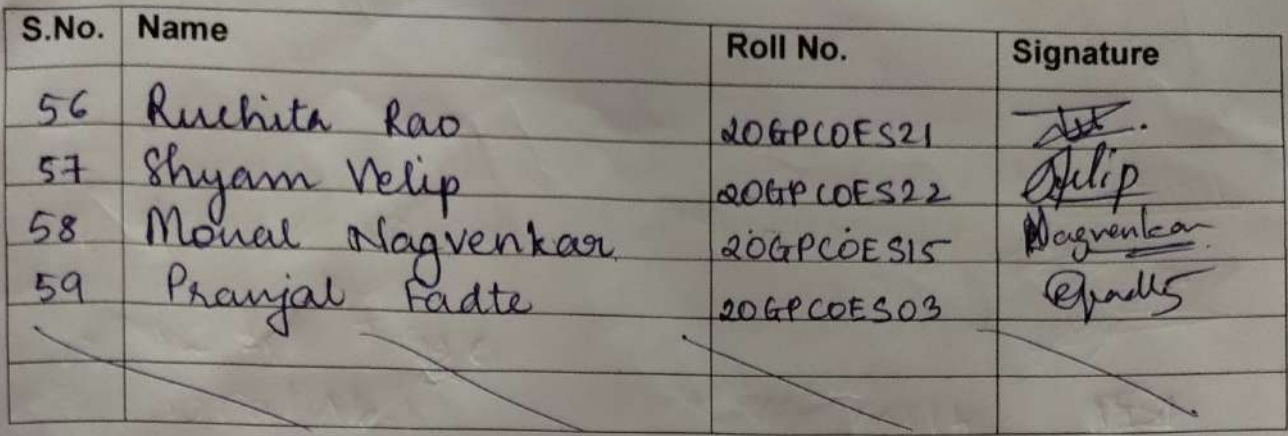 S.No. Name Roll No. Signature
56 Ruchita Rao 20GPCOES21
57 Shyam Velip 20GPCOES22 Velip
58 Monal Nagvenkar 20GPCOES15 Nagvenkar
59 Pranjal Fadte 20GPCOES03